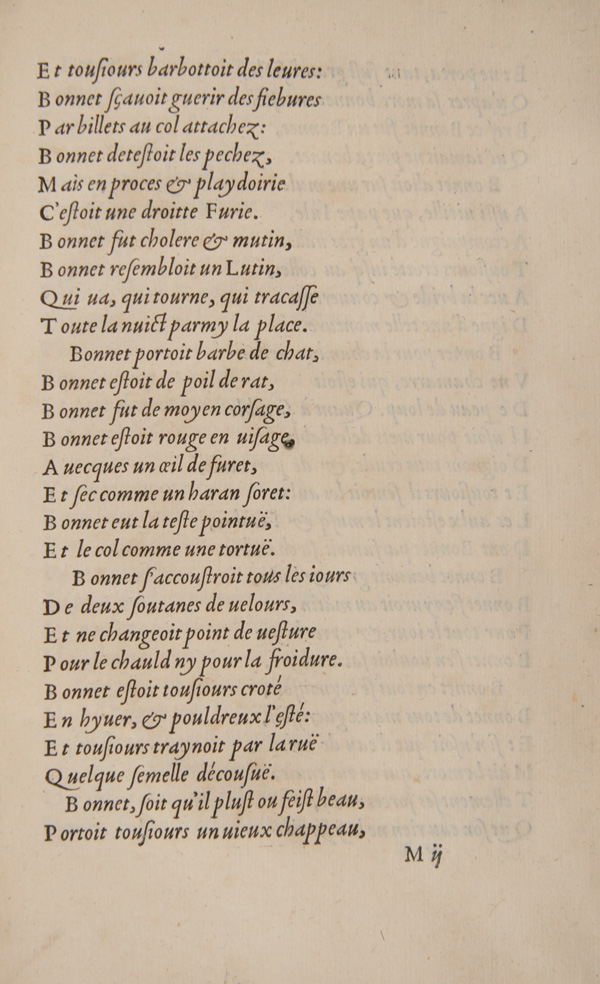 Et touſiours barbottoit des leures:
Bonnet ſçauoit guerir des fiebures
Par billets au col attachez:
Bonnet deteſtoit les pechez,
Mais en proces & playdoirie
C'eſtoit une droitte Furie.
Bonnet fut cholere & mutin,
Bonnet reſembloit un Lutin,
Qui ua, qui tourne, qui tracaſſe
Toute la nuict parmy la place.
Bonnet portoit barbe de chat,
Bonnet eſtoit de poil de rat,
Bonnet fut de moyen corſage,
Bonnet eſtoit rouge en uiſage,
Auecques un œil de furet,
Et ſec comme un haran ſoret:
Bonnet eut la teſte pointuë,
Et le col comme une tortuë.
Bonnet ſ'accouſtroit tous les iours
De deux ſoutanes de uelours,
Et ne changeoit point de ueſture
Pour le chauld ny pour la froidure.
Bonnet eſtoit touſiours croté
En hyuer, & pouldreux l'eſté:
Et touſiours traynoit par la ruë
Quelque ſemelle découſuë.
Bonnet, ſoit qu'il pluſt ou feiſt beau,
Portoit touſiours un uieux chappeau,
M ij